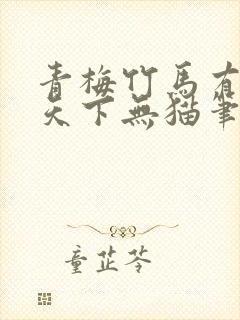 青梅竹馬有
天下無貓筆
童芷苓